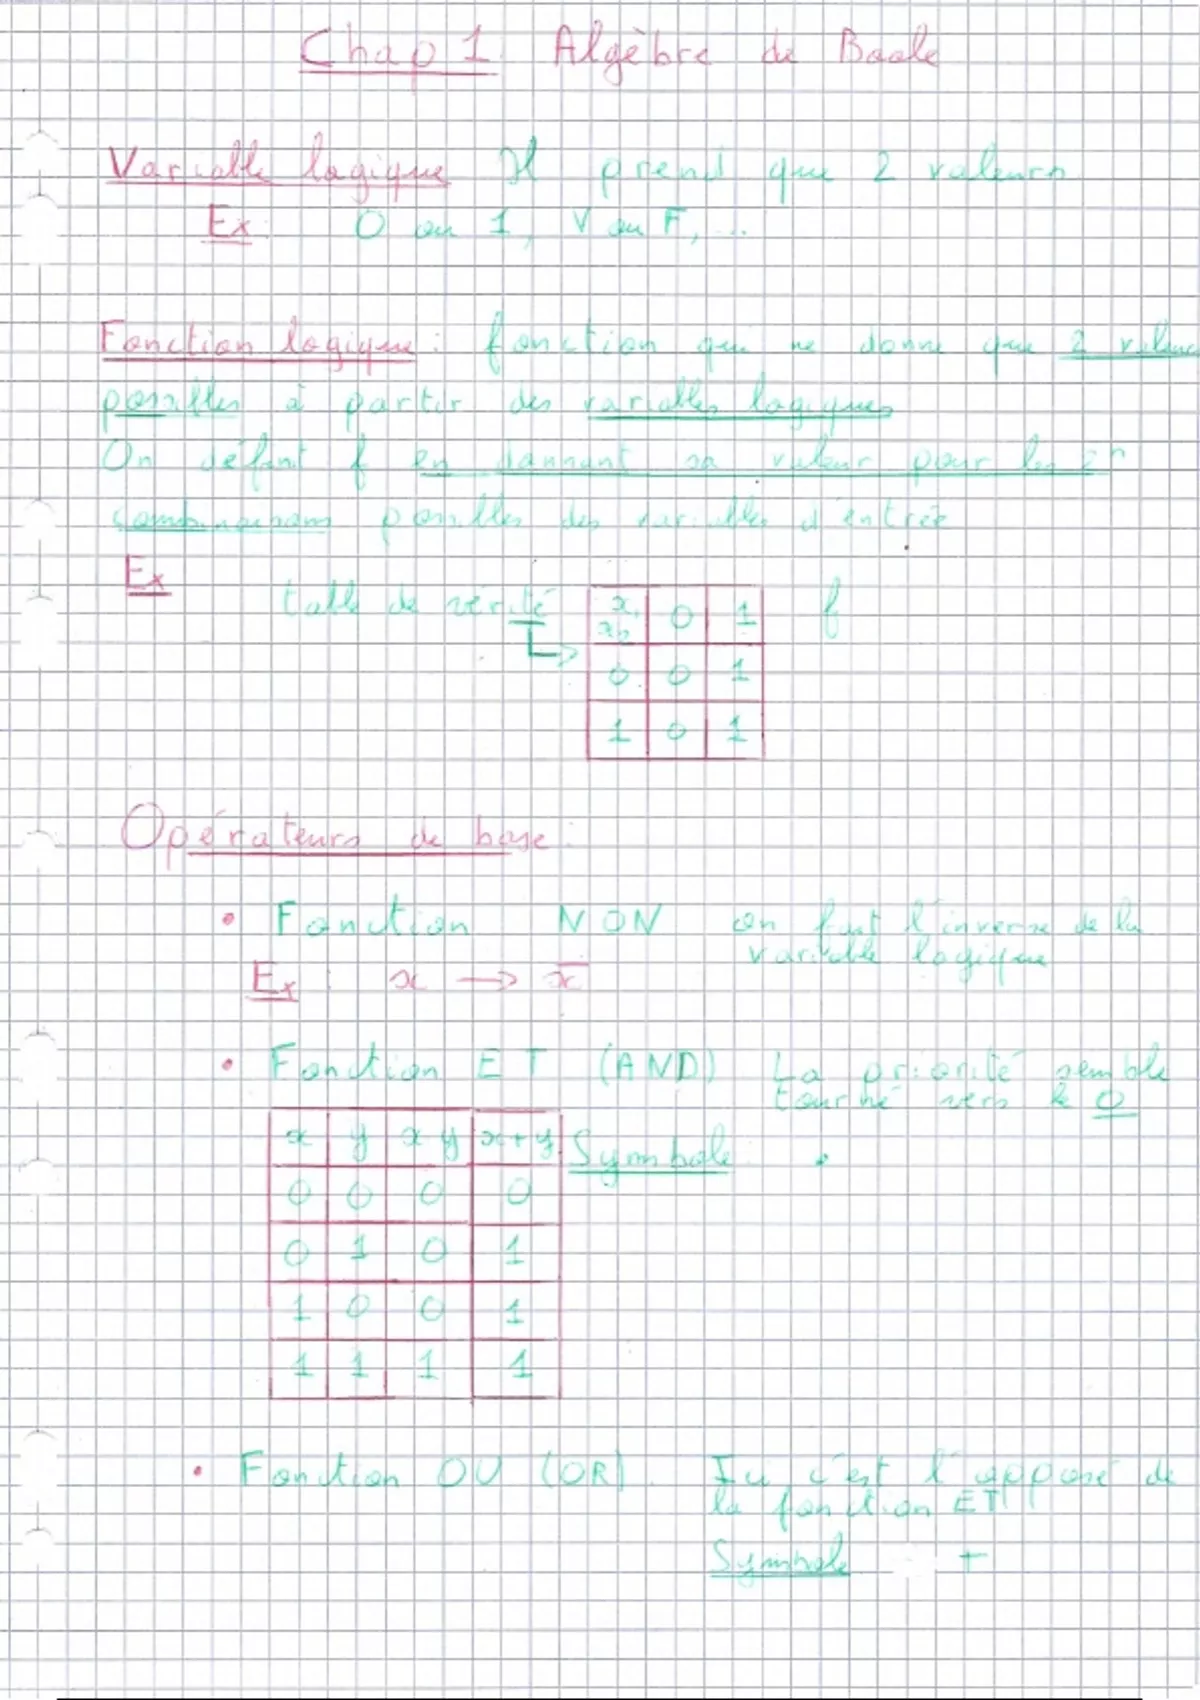 Chap 1 Algèbre de Boole
Variable logique Il prend que 2 valeurs
Ex: 0 ou 1, V ou F, ...
Fonction logique: fonction qui ne donne que 2 valeurs
possibles à partir des variables logiques
On définit f en donnant sa valeur pour les 2ⁿ
combinaisons possibles des variables d'entrée
Ex table de vérité f
x₁ x₂ 0 1
0 0 1
1 0 1
Opérateurs de base:
• Fonction NON on fait l'inverse de la
variable logique
Ex: x → x̅
• Fonction ET (AND) La priorité semble
tourné vers le 0
Symbole: •
x y x y x+y
0 0 0 0
0 1 0 1
1 0 0 1
1 1 1 1
• Fonction OU (OR). Ici c'est l'opposé de
la fonction ET
Symbole +